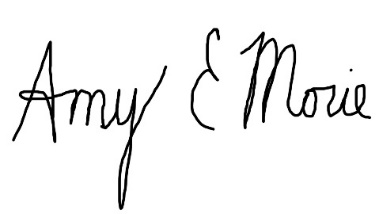 Amy E Morie